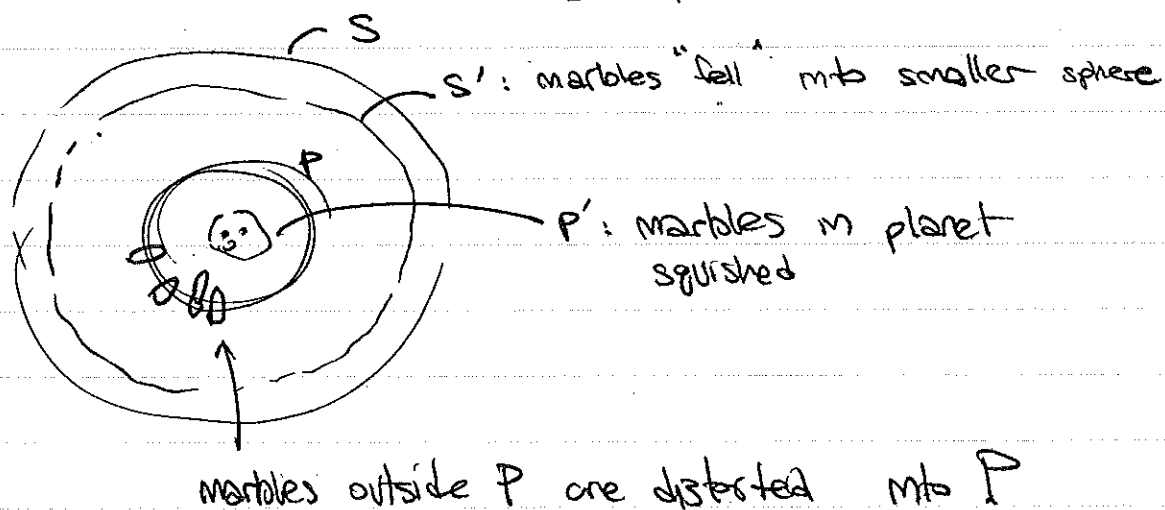 S
S' : marbles "fell" into smaller sphere
P
P' : marbles in planet
squished
marbles outside P are distorted into P